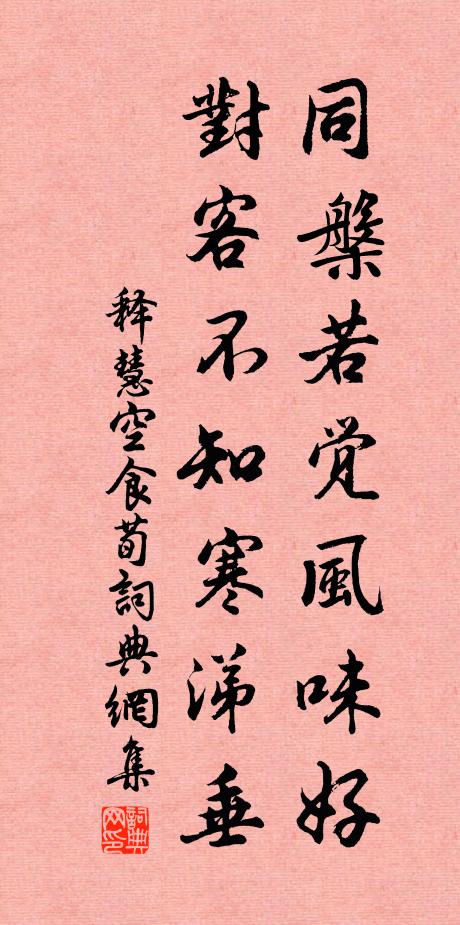 同槃若覺風味好
對客不知寒涕垂
释慧空食荀詞典網集
詞典网印